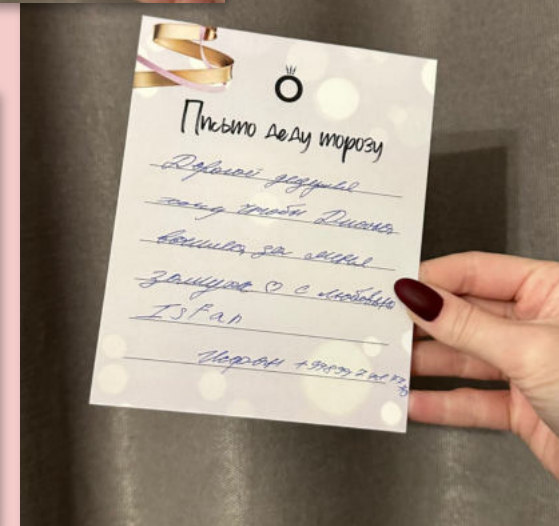 Письмо деду морозу
Дорогой дедушка
хочу чтобы
вышла за меня
замуж ♡ с любовью
Isfan
+99899 7